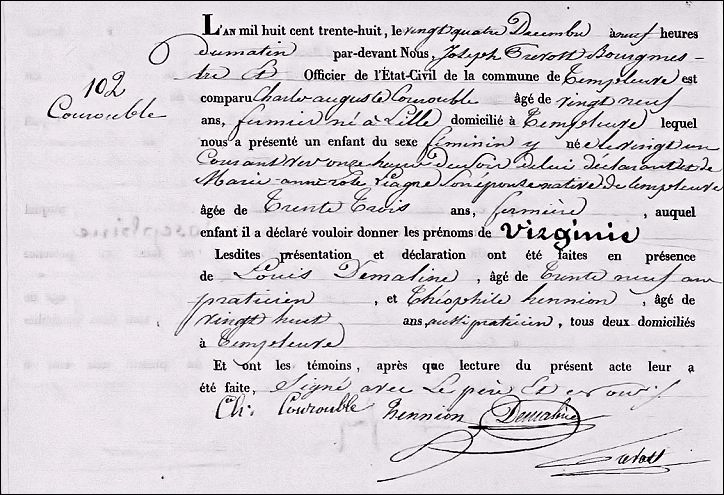 L'AN mil huit cent trente-huit, le vingt quatre Decembre à neuf heures
du matin par-devant Nous, Joseph Bourgmes-
tre Et Officier de l'État-Civil de la commune de Templeuve est
102
Courouble
comparu Charles auguste Courouble âgé de vingt neuf
ans, fermier né à Lille domicilié à Templeuve lequel
nous a présenté un enfant du sexe féminin y née le vingt un
Courant vers onze heures Du Soir de lui déclarant et de
Marie-anne Son épouse native de templeuve
âgée de Trente Trois ans, fermière, auquel
enfant il a déclaré vouloir donner les prénoms de Virginie
Lesdites présentation et déclaration ont été faites en présence
de Louis Demaline, âgé de Trente neuf ans
praticien, et Théophile hennion, âgé de
vingt huit ans, aussi praticien, tous deux domiciliés
à Templeuve
Et ont les témoins, après que lecture du présent acte leur a
été faite, Signé avec Le père Et nous
Ch: Courouble hennion Demaline